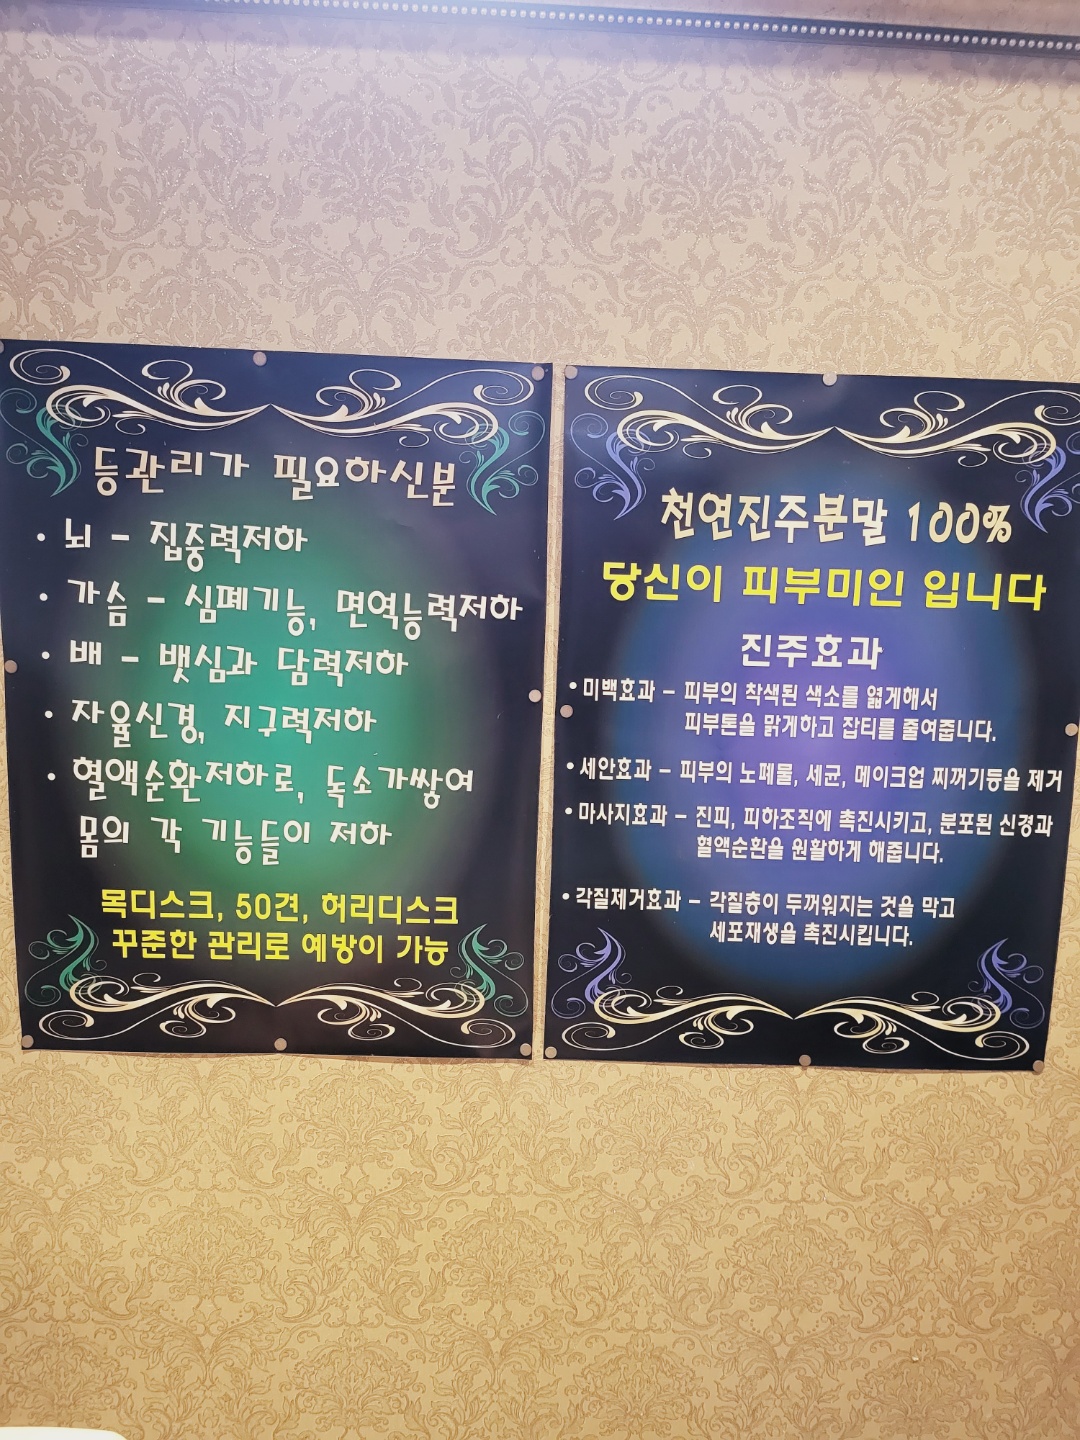 등관리가 필요하신분
• 뇌 - 집중력저하
• 가슴 - 심폐기능, 면역능력저하
• 배 - 뱃심과 담력저하
• 자율신경, 지구력저하
• 혈액순환저하로, 독소가쌓여
몸의 각 기능들이 저하
목디스크, 50견, 허리디스크
꾸준한 관리로 예방이 가능
천연진주분말 100%
당신이 피부미인 입니다
진주효과
• 미백효과 - 피부의 착색된 색소를 엷게해서
피부톤을 맑게하고 잡티를 줄여줍니다.
• 세안효과 - 피부의 노폐물, 세균, 메이크업 찌꺼기등을 제거
• 마사지효과 - 진피, 피하조직에 촉진시키고, 분포된 신경과
혈액순환을 원활하게 해줍니다.
• 각질제거효과 - 각질층이 두꺼워지는 것을 막고
세포재생을 촉진시킵니다.